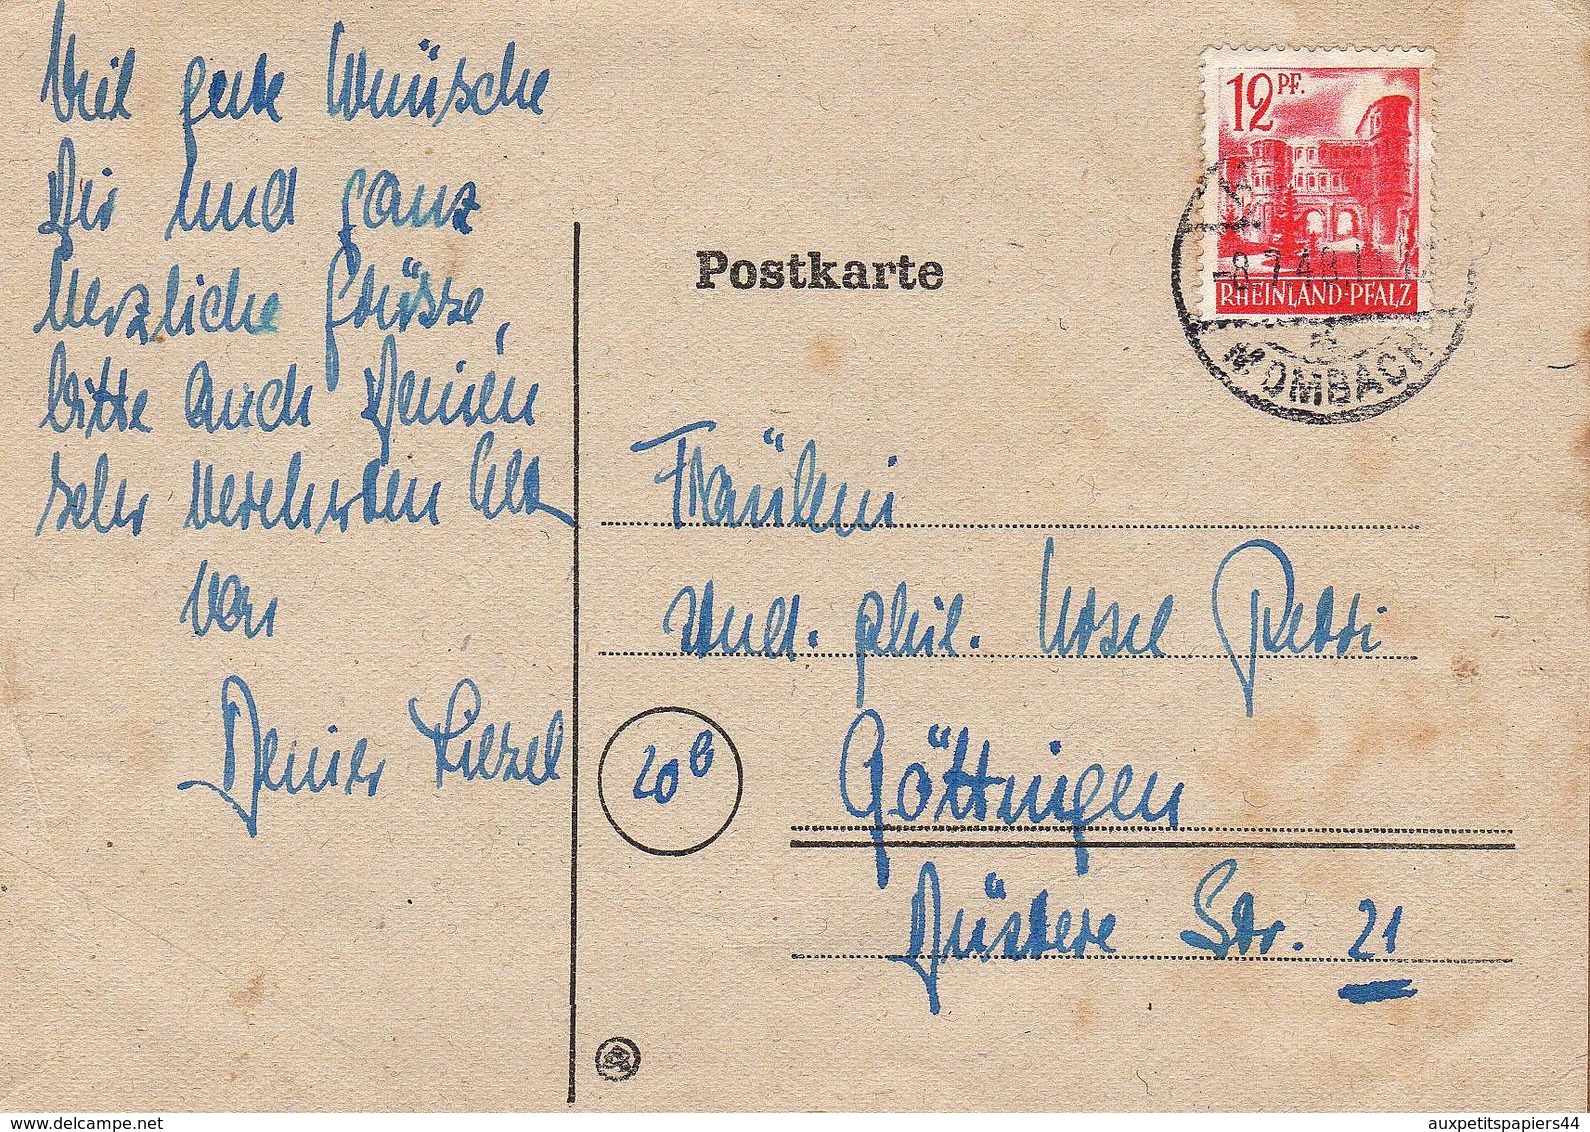 Viel gute Wünsche
Dir und ganz
herzliche Grüsse,
bitte auch Deinen
sehr verehrten
von
Deiner Liezel
Postkarte
12 PF.
RHEINLAND-PFALZ
-8.7.48.11
MOMBACH
Fräulein
stud. phil. Ursel Petri
20b
Göttingen
Düstere Str. 21
delcampe.net
auxpetitspapiers44